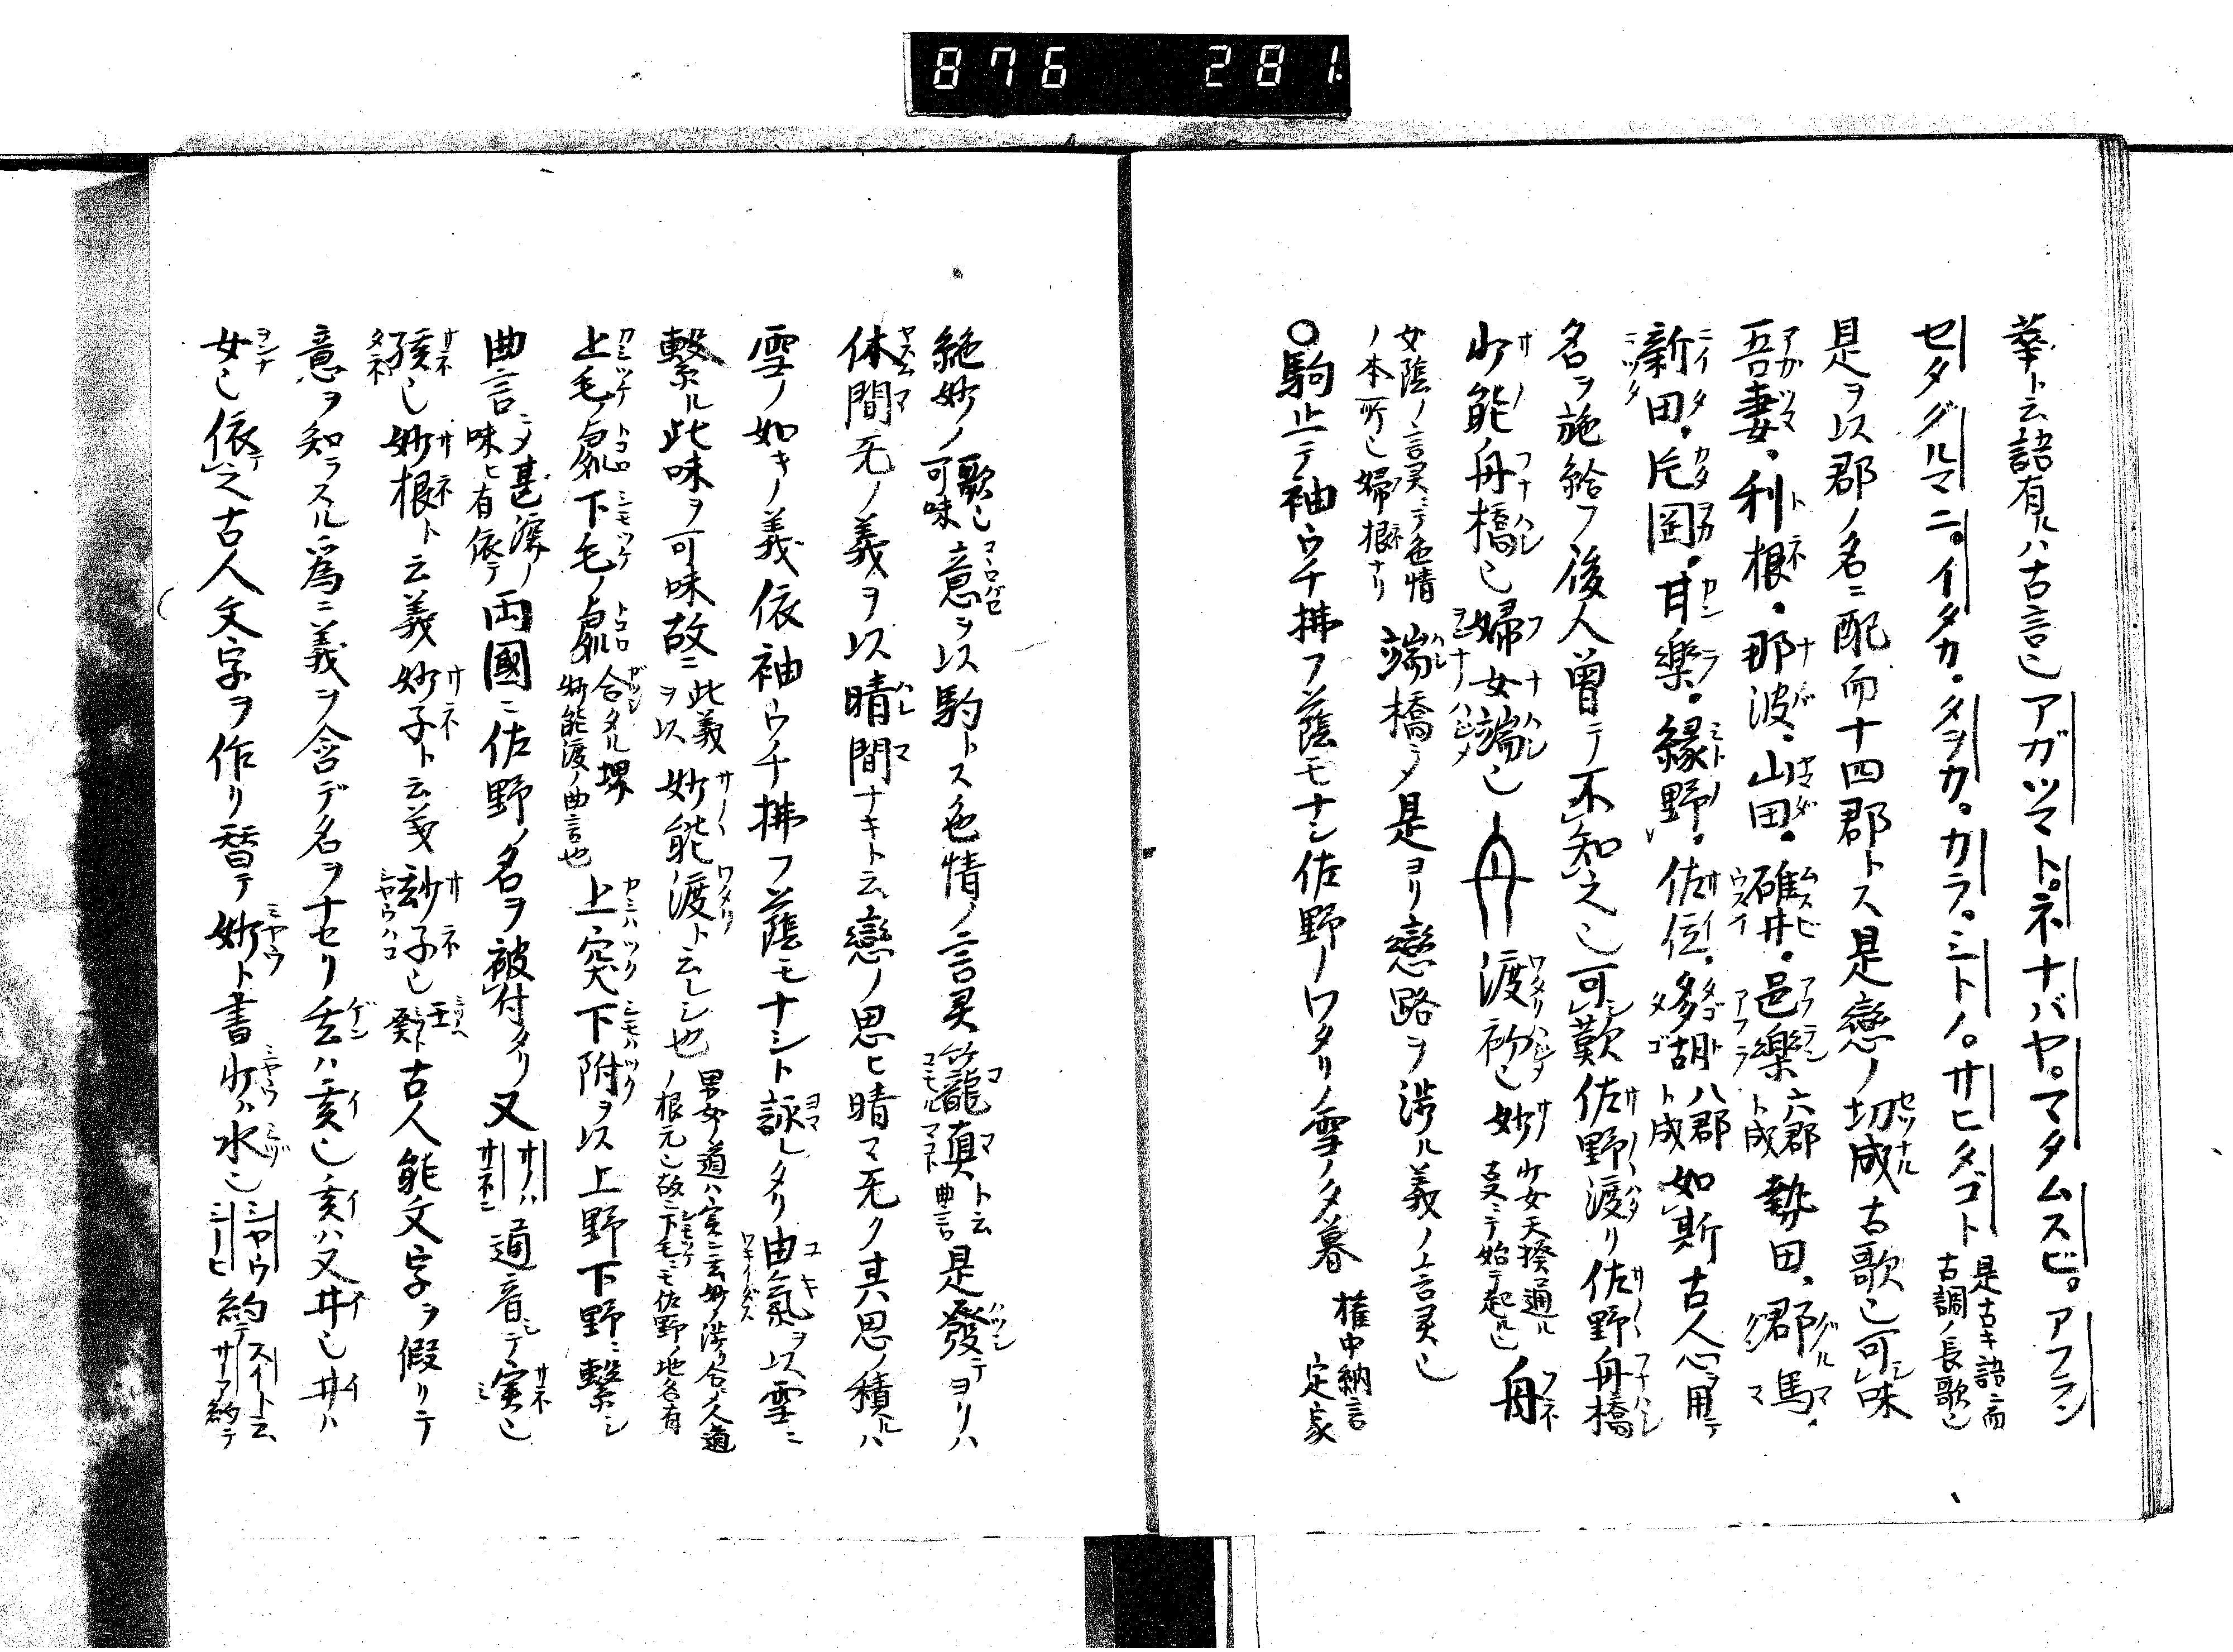 876 281
華ト云語有ルハ古言也アガツマト。ネナバヤ。マタムスビ。アフラン
セタグルマニ。イタカ。タヲカ。カラ。ミトノ。サヒタゴト 是古キ語ニ而古調ノ長歌也
是ヲ以郡ノ名ニ配而十四郡トス是戀ノ切成古歌也可味
吾妻、利根、那波、山田、碓井、邑樂六郡ト成勢田、郡馬、
新田、片岡、甘樂、緑野、佐位、多胡八郡ト成如斯古人心ヲ用テ
名ヲ施給フ後人曽テ不知之也可歎佐野渡リ佐野舟橋
能舟橋也婦女端也 渡初也妙 少女天揆通ル 爰ニテ始テ起ル也 舟
女陰ノ言灵ニテ色情ノ本所也婦根ナリ 端橋ヲ是ヨリ戀路ヲ渉ル義ノ上言灵也
〇駒止テ袖ウチ拂フ蔭モナシ佐野ノワタリノ雪ノ夕暮 権中納言 定家
絶妙ノ歌也可味 意ヲ以駒トス色情ノ言灵 籠真ト云曲言 是發テヨリハ
休間无ノ義ヲ以晴間ナキト云戀ノ思ヒ晴マ无ク其思ノ積ルハ
雪ノ如キノ義依袖ウチ拂フ蔭モナシト詠シタリ由氣ヲ以雪ニ
繋ル此味ヲ可味故ニ此義ヲ以 妙能渡ト云シ也 男女ノ道ハ実ニ玄妙ノ渉リ合ノ人道ノ根元也故ニ下毛ニモ佐野ノ地名有
上毛ノ処下毛ノ処 合タル堺 妙能渡ノ曲言也 上突下附ヲ以上野下野ニ繋シ
曲言ニメ甚深ノ味ヒ有依テ 両國ニ佐野ノ名ヲ被付タリ又サノハサネニ通音シテ実也
核也妙根ト云義妙子ト云義玅子也 古人能文字ヲ假リテ
意ヲ知ラスル為ニ義ヲ含テ名ヲナセリ玄ハ亥也亥ハ又井也井ハ
女也依之古人文字ヲ作リ替テ妙ト書少ハ水也シヤウ約スイト云 ミーヒ約テサーア約テ